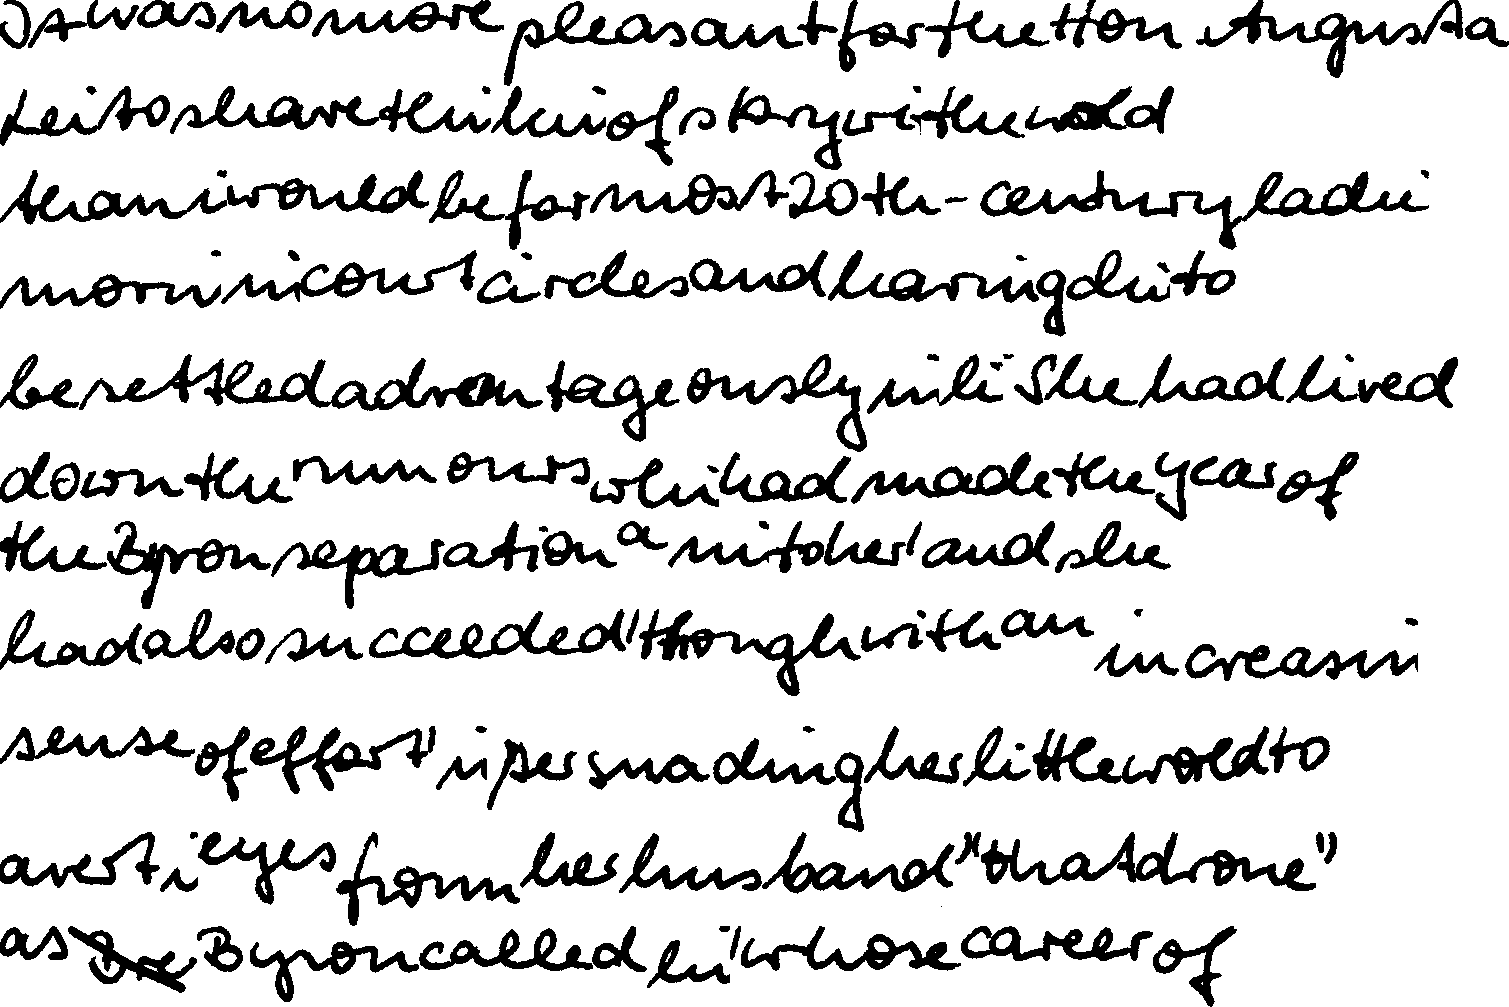 It was no more pleasant for the Hon. Augusta
Lei to share thi kin of story with the world
than i would be for most 20th-century ladie
movin in court circles and having du to
be settled advantageously in li She had lived
down the rumours whi had made the year of
the Byron separation a ni to her, and she
had also succeeded, though with an increasin
sense of effort, in persuading her little world to
avert i eyes from her husband, "that drone",
as Byron called hi, whose career of